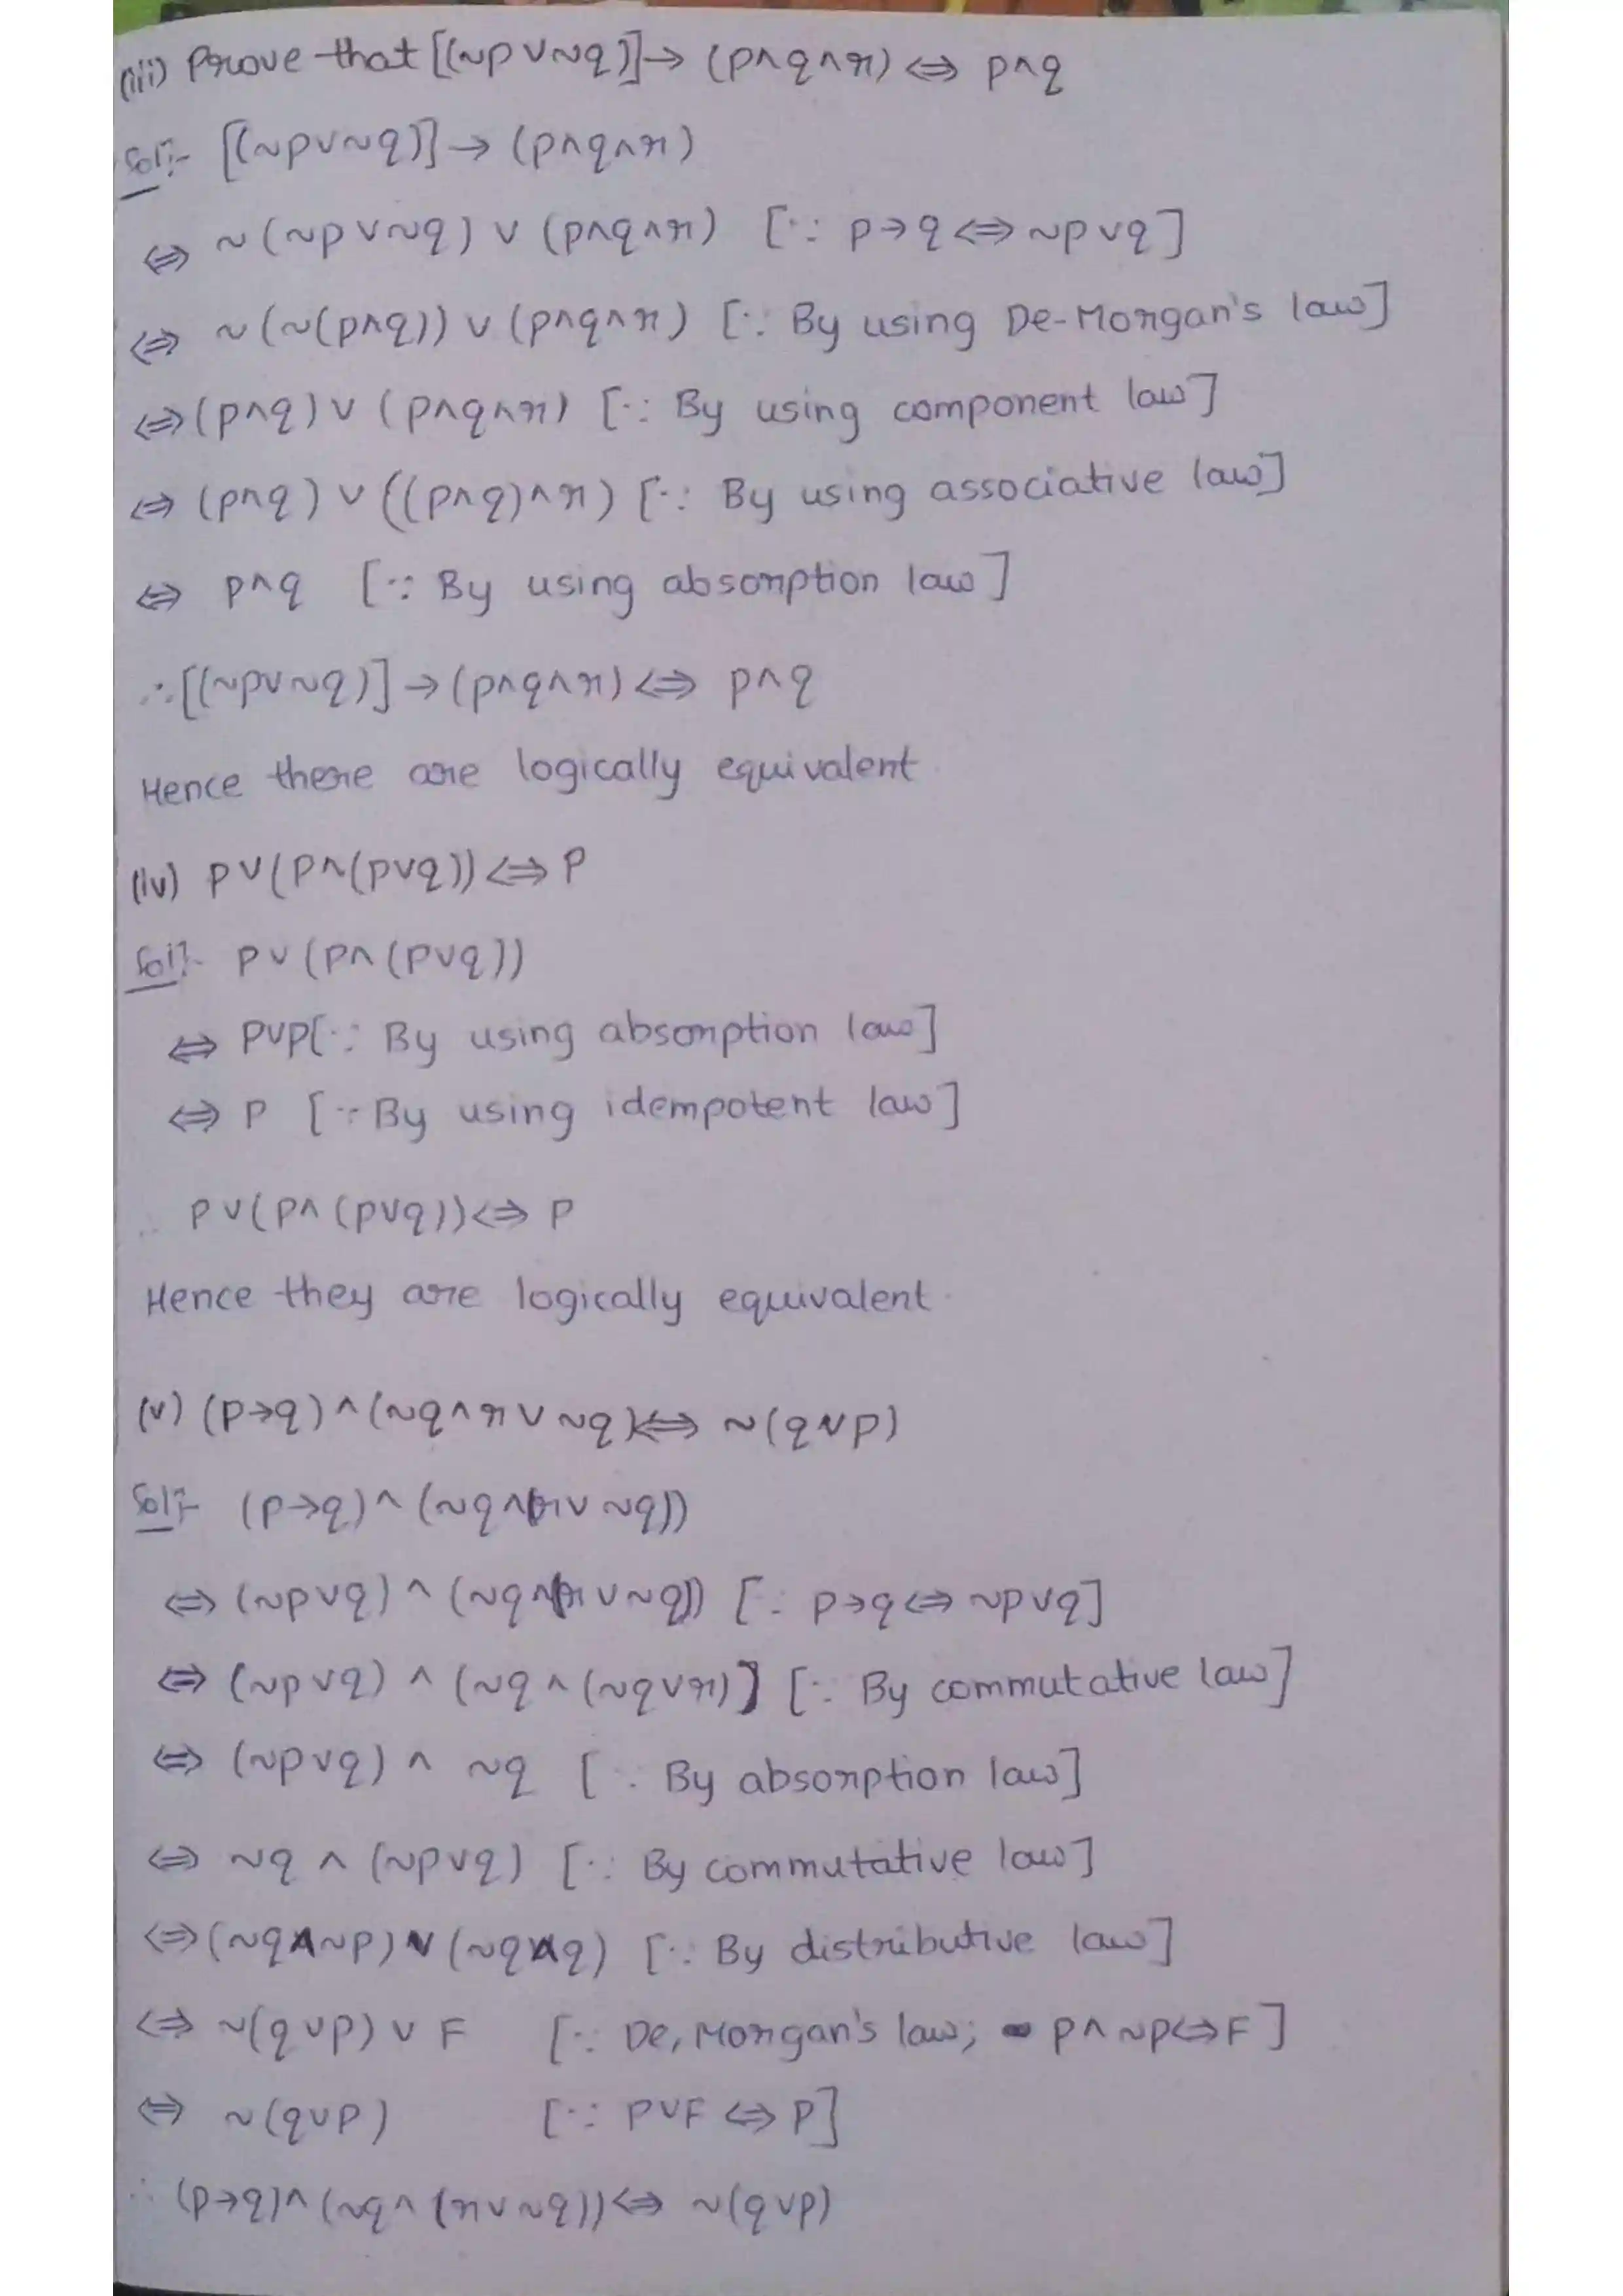 (iii) Prove that [(~p∨~q)]→ (p∧q∧r) ⇔ p∧q
Sol:- [(~p∨~q)]→ (p∧q∧r)
⇔ ~(~p∨~q) ∨ (p∧q∧r) [∵ p→q⇔~p∨q]
⇔ ~(~(p∧q)) ∨ (p∧q∧r) [∵ By using De-Morgan's law]
⇔(p∧q) ∨ (p∧q∧r) [∵ By using component law]
⇔ (p∧q) ∨ ((p∧q)∧r) [∵ By using associative law]
⇔ p∧q [∵ By using absorption law]
∴[(~p∨~q)]→(p∧q∧r)⇔ p∧q
Hence there are logically equivalent
(iv) p∨(p∧(p∨q))⇔P
Sol:- p∨(p∧(p∨q))
⇔ p∨p[∵ By using absorption law]
⇔ P [∵ By using idempotent law]
∴ p∨(p∧(p∨q))⇔ P
Hence they are logically equivalent.
(v) (p→q)∧(~q∧r∨~q)⇔ ~(q∨p)
Sol:- (p→q)∧(~q∧(r∨~q))
⇔ (~p∨q)∧(~q∧(r∨~q)) [∵ p→q⇔~p∨q]
⇔ (~p∨q) ∧ (~q∧(~q∨r)] [∵ By commutative law]
⇔ (~p∨q) ∧ ~q [∵ By absorption law]
⇔ ~q ∧ (~p∨q) [∵ By commutative law]
⇔(~q∧~p)∨(~q∧q) [∵ By distributive law]
⇔ ~(q∨p)∨F [∵ De, Morgan's law; p∧~p⇔F]
⇔ ~(q∨p) [∵ P∨F⇔P]
∴ (p→q)∧(~q∧(r∨~q))⇔ ~(q∨p)